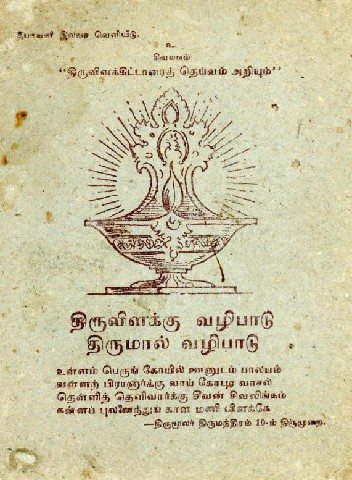 தீபாவளி இலவச வெளியீடு.
உ
சிவமயம்
"திருவிளக்கிட்டாரைத் தெய்வம் அறியும்"
திருவிளக்கு வழிபாடு
திருமால் வழிபாடு
உள்ளம் பெருங் கோயில் ஊனுடம் பாலயம்
வள்ளற் பிரானார்க்கு வாய் கோபுர வாசல்
தெள்ளித் தெளிவார்க்கு சீவன் சிவலிங்கம்
கள்ளப் புலனைந்துங் காள மணி விளக்கே
—திருமூலர் திருமந்திரம் 10-ம் திருமுறை.